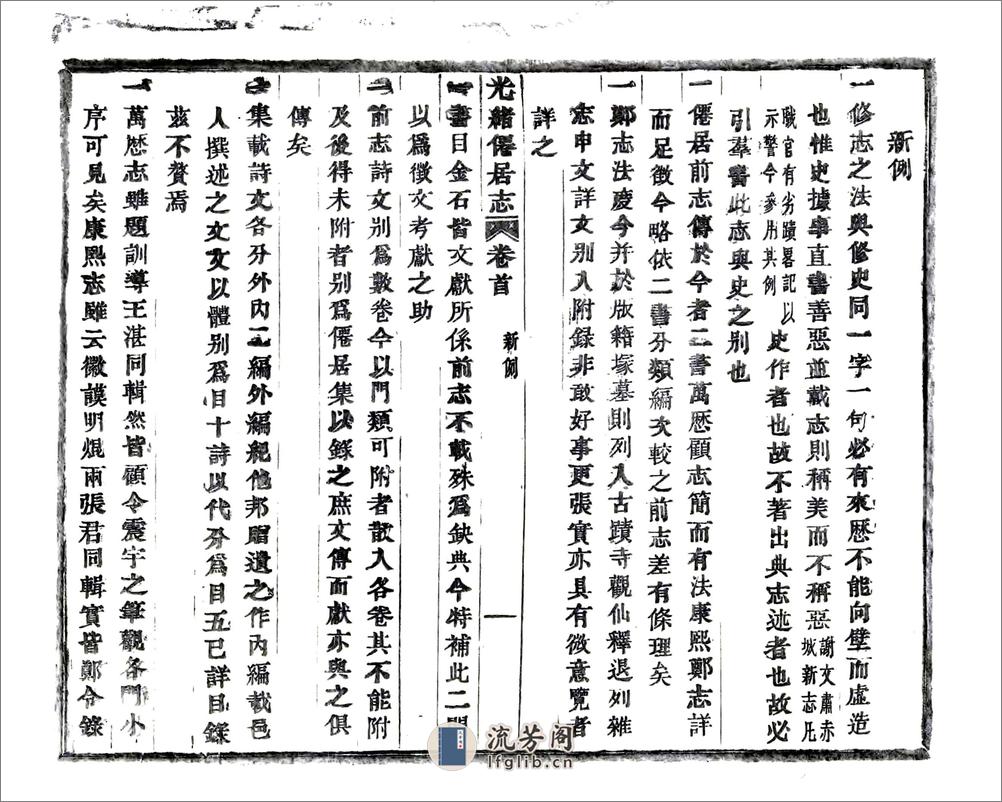 新例
一修志之法與修史同一字一句必有來歷不能向壁而虛造
也惟史據事直書善惡並載志則稱美而不稱惡謝文肅赤城新志凡
職官有劣蹟畧記以示警今參用其例史作者也故不著出典志述者也故必
引羣書此志與史之別也
一僊居前志傳於今者二書萬歷顧志簡而有法康熙鄭志詳
而足徵今略依二書分類編次較之前志差有條理矣
一鄭志法慶今并於版籍塚墓則列入古蹟寺觀仙釋退列雜
志申文詳文別入附錄非敢好事更張實亦具有微意覽者
詳之
光緒僊居志 卷首 新例 一
一書目金石皆文獻所係前志不載殊爲缺典今特補此二門
以爲徵文考獻之助
一前志詩文別爲數卷今以門類可附者散入各卷其不能附
及後得未附者別爲僊居集以錄之庶文傳而獻亦與之俱
傳矣
一集載詩文各分外內二編外編紀他邦贈遺之作內編載邑
人撰述之文文以體別爲目十詩以代分爲目五已詳目錄
茲不贅焉
一萬歷志雖題訓導王湛同輯然皆顧令震宇之筆觀各門小
序可見矣康熙志雖云徽謨明焜兩張君同輯實皆鄭令錄
流芳阁
lfglib.cn